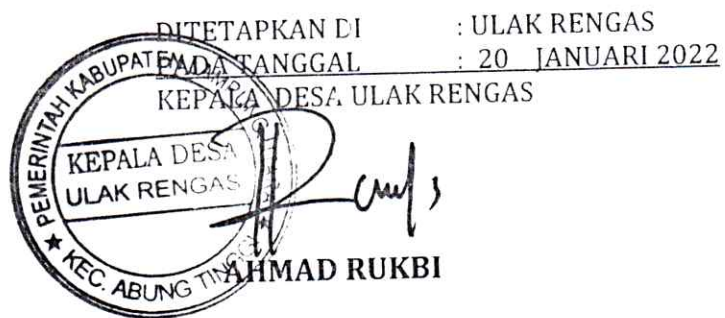 DITETAPKAN DI : ULAK RENGAS
PADA TANGGAL : 20 JANUARI 2022
KEPALA DESA ULAK RENGAS
PEMERINTAH KABUPATEN
KEPALA DESA
ULAK RENGAS
★ KEC. ABUNG TINGGI
AHMAD RUKBI